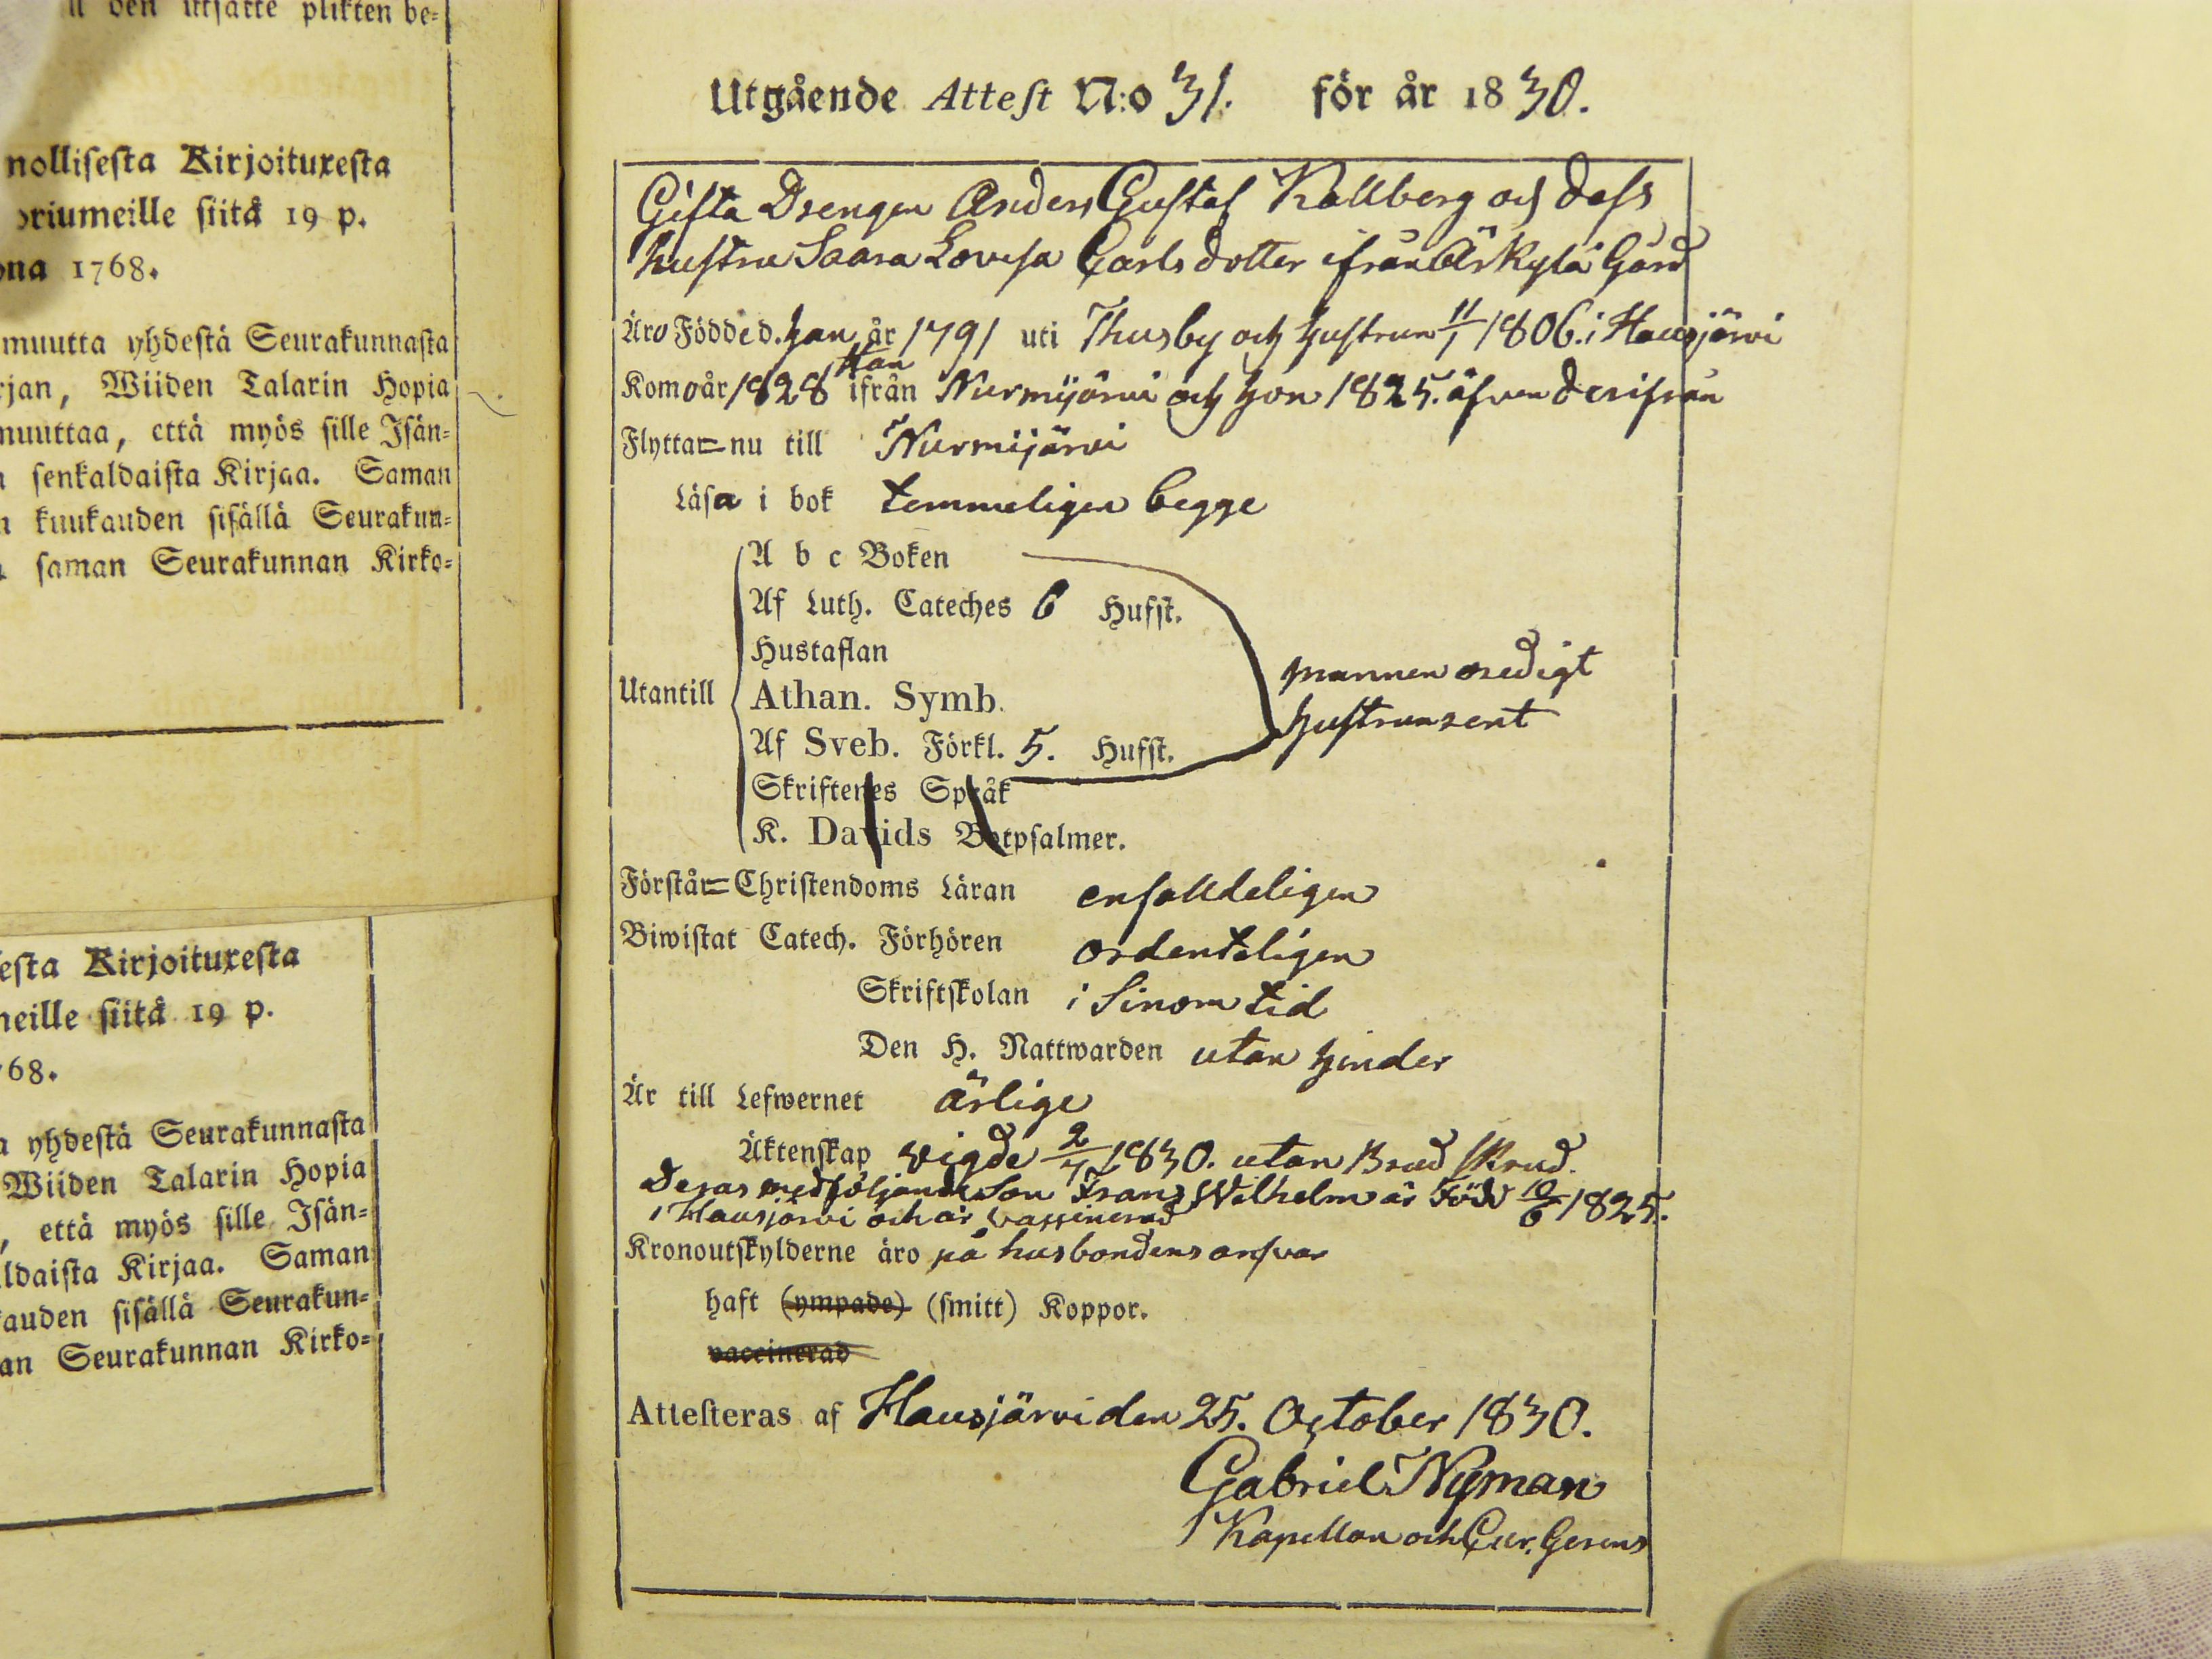 ll den utsatte plikten be=
nollisesta Kirjoituxesta
oriumeille siitä 19 p.
ona 1768.
muutta yhdestä Seurakunnasta
rjan, Wiiden Talarin Hopia
muuttaa, että myös sille Isän=
senkaldaista Kirjaa. Saman
kuukauden sisällä Seurakun=
saman Seurakunnan Kirko=
esta Kirjoituxesta
meille siitä 19 p.
768.
a yhdestä Seurakunnasta
Wiiden Talarin Hopia
, että myös sille Isän=
ldaista Kirjaa. Saman
kauden sisällä Seurakun=
an Seurakunnan Kirko=
Utgående Attest N:o 31. för år 1830.
Gifta Drengen Anders Gustaf Kallberg och dess
hustru Saara Lovisa Carlsdotter ifrån Ärkylä Gård
Äro Födde d. han år 1791 uti Thusby och hustrun 11/1 1806. i Hausjärvi
Han
Komo år 1828 ifrån Nurmijärvi och hon 1825. äfven derifrån
Flyttar= nu till Nurmijärvi
Läsa i bok temmeligen begge
A b c Boken
Af Luth. Cateches 6 Hufst.
Hustaflan
mannen oredigt
Utantill Athan. Symb.
hustrun rent
Af Sveb. Förkl. 5. Hufst.
Skriftenes Språk
K. Davids Botpsalmer.
Förstår= Christendoms Läran enfalldeligen
Biwistat Catech. Förhören ordenteligen
Skriftskolan i Sinom tid
Den H. Nattwarden utan hinder
Är till Lefwernet ärlige
Äktenskap vigde 2/7 1830. utan Brud Skrud.
Deras medföljande Son Frans Wilhelm är Född 10/6 1825.
i Hausjärvi och är vassinerad
Kronoutskylderne äro på husbondens ansvar
haft (ympade) (smitt) Koppor.
vaccinerad
Attesteras af Hausjärvi den 25. October 1830.
Gabriel Nyman
Kapellan och Cur. Gerens